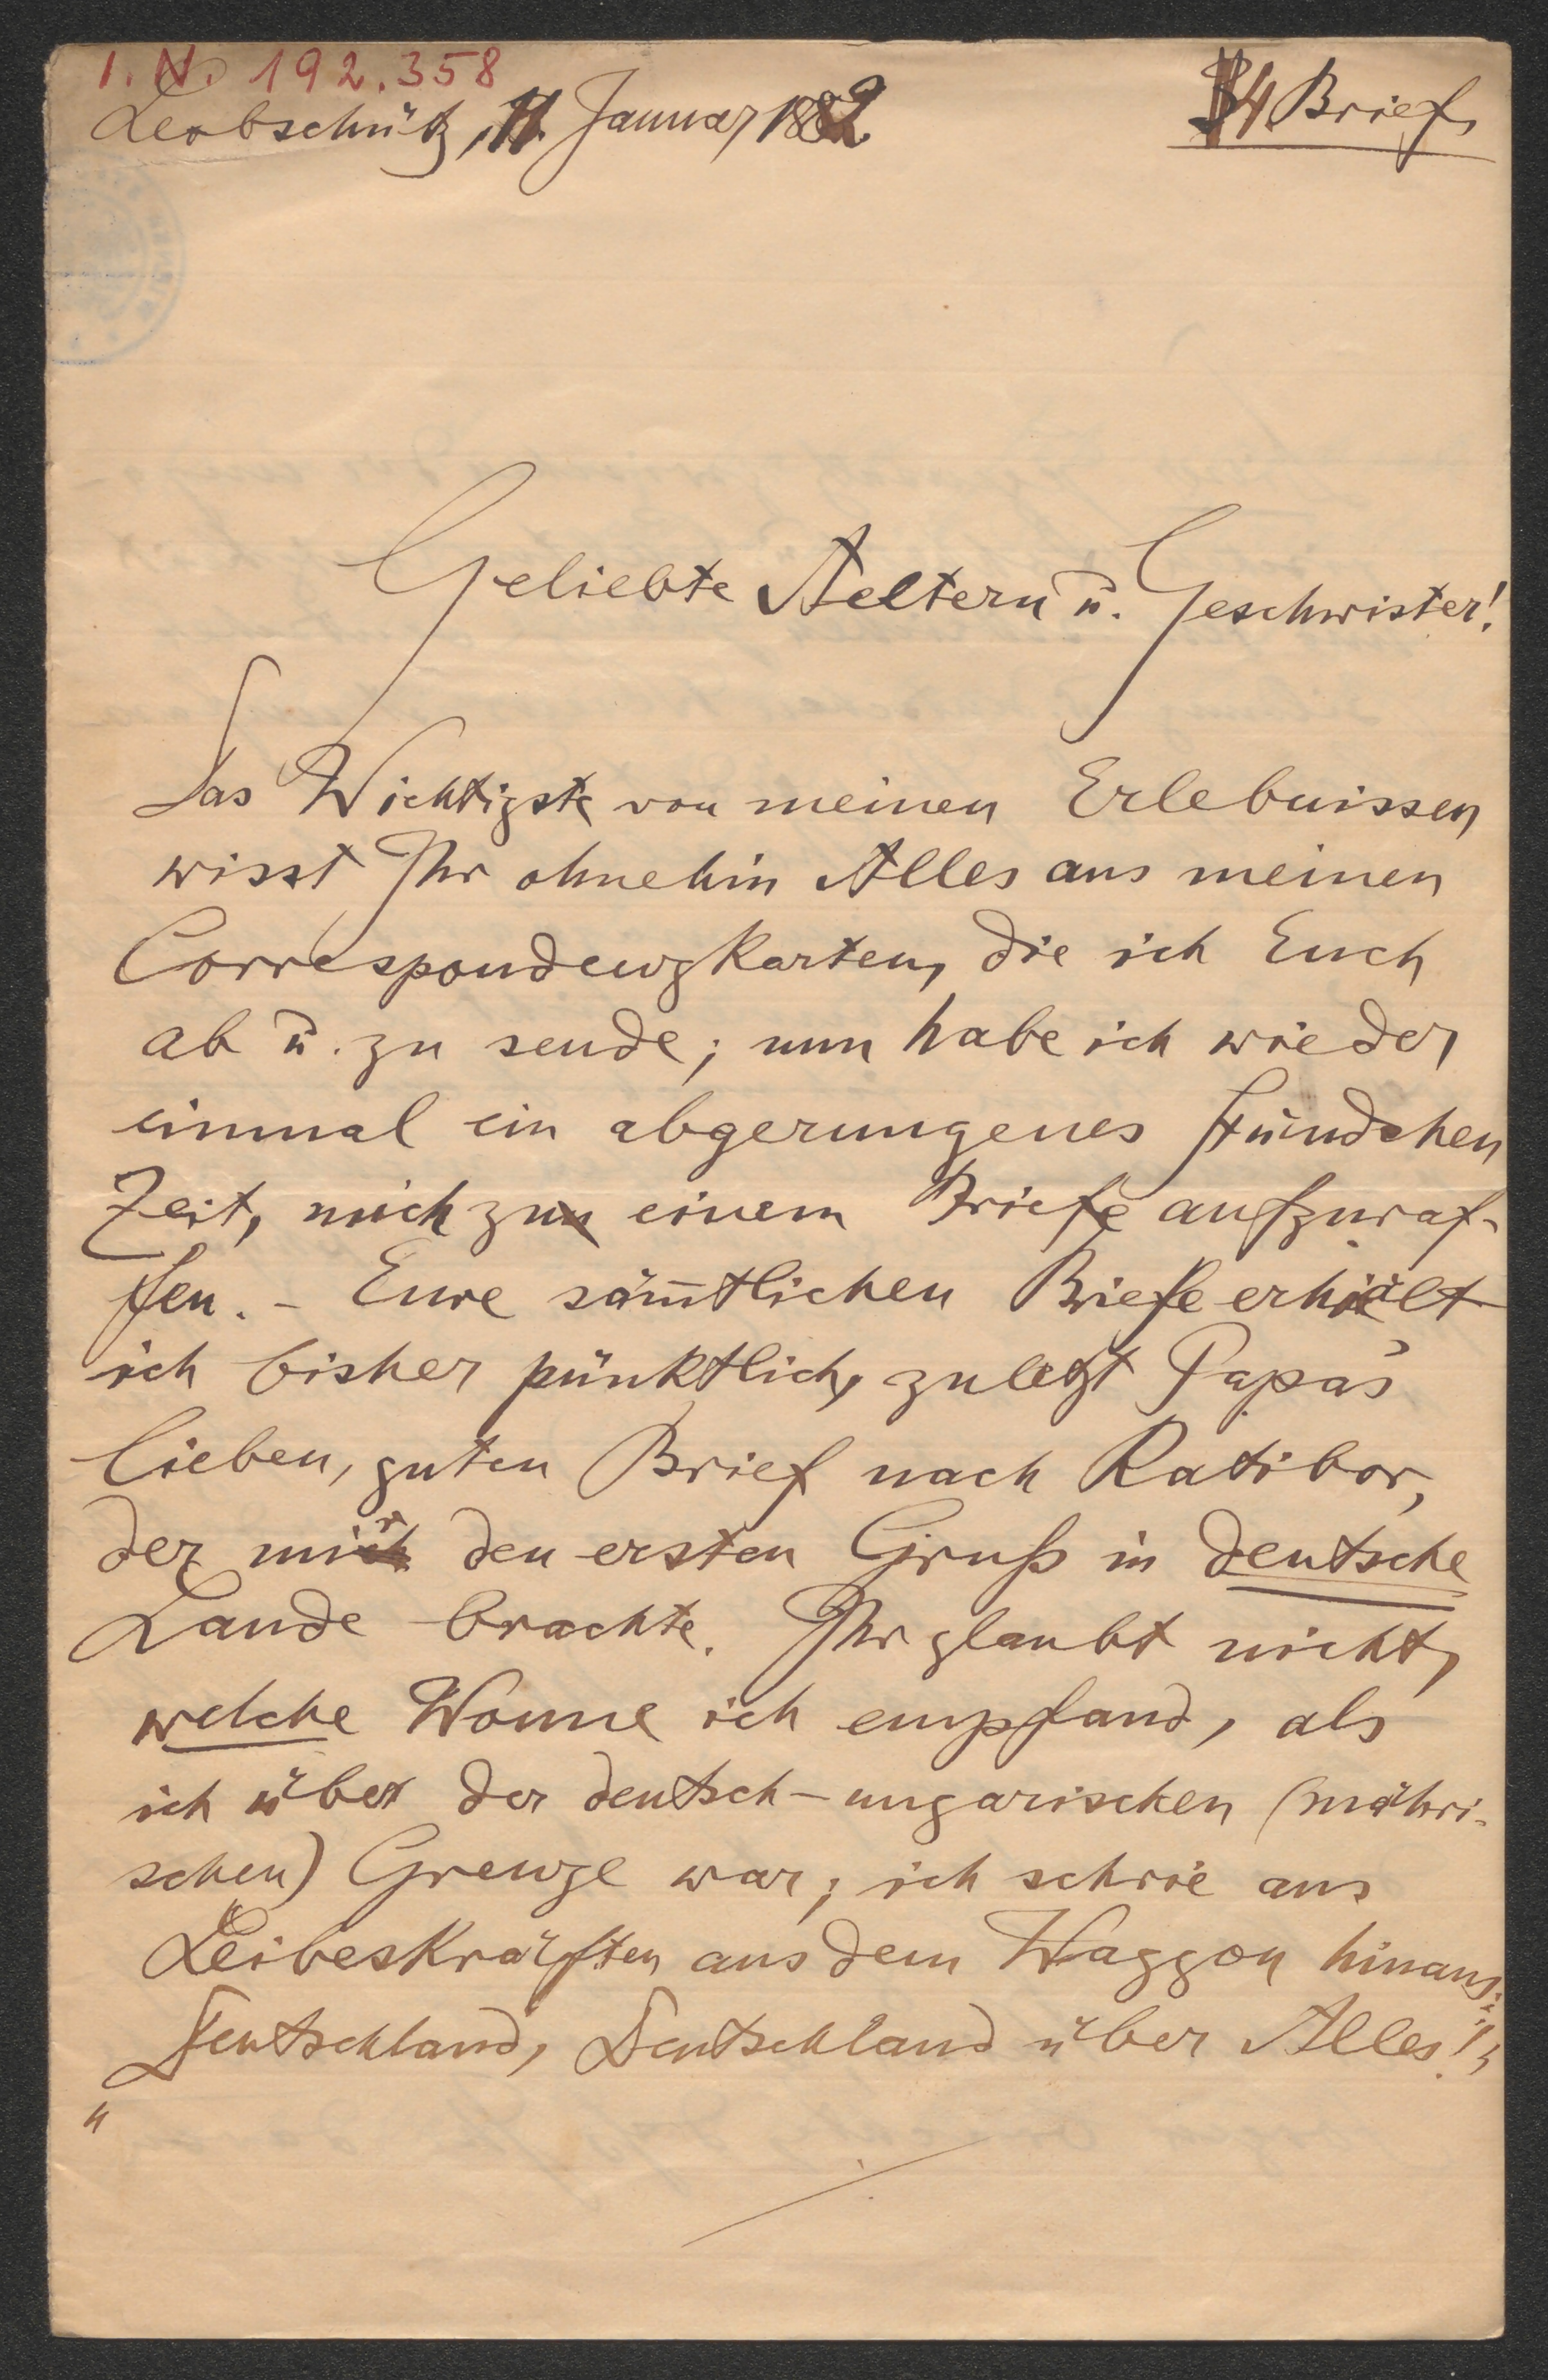 I. N. 192.358
Leobschütz, 11. Januar 1882.
4 Brief,
Geliebte Aeltern u. Geschwister!
Das Wichtigste von meinen Erlebnissen
wisst Ihr ohnehin Alles aus meinen
Correspondenzkarten, die ich Euch
ab u. zu sende; nun habe ich wieder
einmal ein abgerungenes Stündchen
Zeit, mich zu einem Briefe aufzuraf-
fen. – Eure sämtlichen Briefe erhielt
ich bisher pünktlich, zuletzt Papa's
lieben, guten Brief nach Ratibor,
der mir den ersten Gruß in deutsche
Lande brachte. Ihr glaubt nicht,
welche Wonne ich empfand, als
ich über der deutsch-ungarischen (mähri-
schen) Grenze war; ich schrie aus
Leibeskräften aus dem Waggon hinaus:
„Deutschland, Deutschland über Alles!"